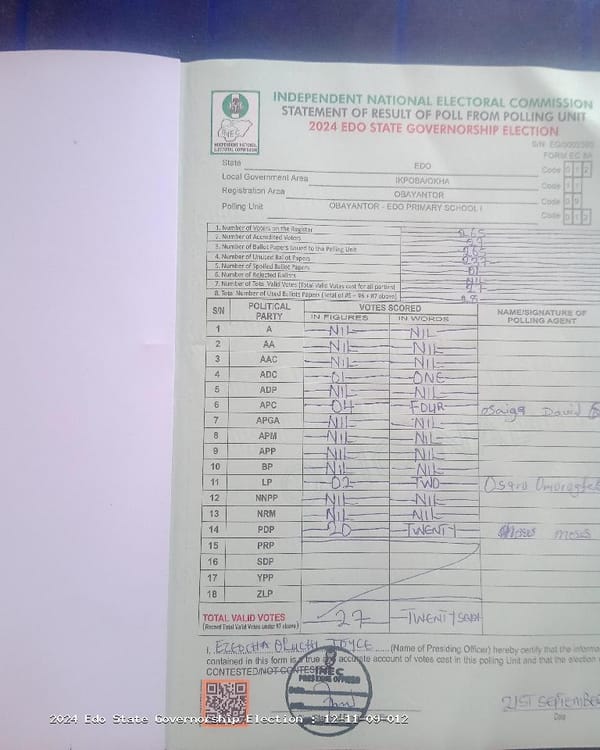 INDEPENDENT NATIONAL ELECTORAL COMMISSION
STATEMENT OF RESULT OF POLL FROM POLLING UNIT
2024 EDO STATE GOVERNORSHIP ELECTION
FORM EC 8A
State EDO Code 1 2
Local Government Area IKPOBA/OKHA Code
Registration Area OBAYANTOR Code
Polling Unit OBAYANTOR - EDO PRIMARY SCHOOL I Code 0 1 2
1. Number of Voters on the Register 265
2. Number of Accredited Voters
3. Number of Ballot Papers Issued to the Polling Unit
4. Number of Unused Ballot Papers
5. Number of Spoiled Ballot Papers
6. Number of Rejected Ballots
7. Number of Total Valid Votes (Total Valid Votes cast for all parties)
8. Total Number of Used Ballots Papers (Total of #5 + #6 + #7 above) 28
S/N POLITICAL PARTY VOTES SCORED NAME/SIGNATURE OF POLLING AGENT
IN FIGURES IN WORDS
1 A NIL NIL
2 AA NIL NIL
3 AAC NIL NIL
4 ADC 01 ONE
5 ADP NIL NIL
6 APC 04 FOUR Osaigs David
7 APGA NIL NIL
8 APM NIL NIL
9 APP NIL NIL
10 BP NIL NIL
11 LP 02 TWO
12 NNPP NIL NIL
13 NRM NIL NIL
14 PDP 20 TWENTY Moses moses
15 PRP
16 SDP
17 YPP
18 ZLP
TOTAL VALID VOTES 27 TWENTY SEVEN
(Record Total Valid Votes under #7 above)
I, JOYCE (Name of Presiding Officer) hereby certify that the informa
contained in this form is a true and accurate account of votes cast in this polling Unit and that the election
CONTESTED/NOT CONTESTED
INEC
PRESIDING OFFICER
21ST SEPTEMBER
Date
2024 Edo State Governorship Election : 12-11-09-012